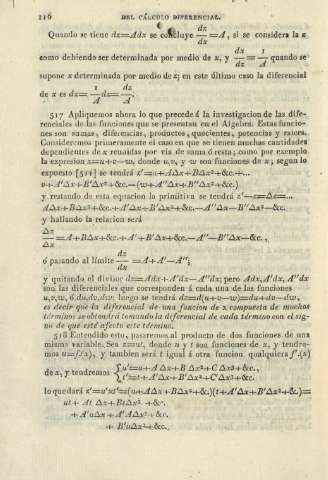 116 DEL CÁLCULO DIFERENCIAL.
Quando se tiene dz=Adx se concluye dz/dx=A, si se considera la z
como debiendo ser determinada por medio de x, y dx/dz=1/A quando se
supone x determinada por medio de z; en este último caso la diferencial
de x es dx=1/A dz=dz/A.
517 Apliquemos ahora lo que precede á la investigacion de las dife-
renciales de las funciones que se presentan en el Algebra. Estas funcio-
nes son sumas, diferencias, productos, quocientes, potencias y raices.
Consideremos primeramente el caso en que se tienen muchas cantidades
dependientes de x reunidas por via de suma ó resta; como por exemplo
la expresion z=u+v-w, donde u,v, y w son funciones de x; segun lo
expuesto [511] se tendrá z'=u+A∆x+B∆x²+&c.+...
v+A'∆x+B'∆x²+&c.-(w+A''∆x+B''∆x²+&c.)
y restando de esta equacion la primitiva se tendrá z'-z=∆z=...
A∆x+B∆x²+&c.+A'∆x+B'∆x²+&c.-A''∆x-B''∆x²-&c.
y hallando la relacion será
∆z/∆x=A+B∆x+&c.+A'+B'∆x+&c.-A''-B''∆x-&c.,
ó pasando al límite dz/dx=A+A'-A'';
y quitando el divisor dz=Adx+A'dx-A''dx; pero Adx,A'dx, A''dx
son las diferenciales que corresponden á cada una de las funciones
u,v,w, ó du,dv,dw; luego se tendrá dz=d(u+v-w)=du+dv-dw,
es decir que la diferencial de una funcion de x compuesta de muchos
términos se obtendrá tomando la diferencial de cada término con el sig-
no de que esté afecto este término.
518 Entendido esto, pasaremos al producto de dos funciones de una
misma variable. Sea z=ut, donde u y t son funciones de x, y tendre-
mos u=f(x), y tambien será t igual á otra funcion qualquiera f'(x)
de x, y tendremos { u'=u+A∆x+B∆x²+C∆x³+&c.,
t'=t+A'∆x+B'∆x²+C'∆x³+&c.
lo que dará z'=u't'=(u+A∆x+B∆x²+&.)(t+A'∆x+B'∆x²+&.)=
ut+At∆x+Bt∆x²+&c.
+A'u∆x+A'A∆x²+&c.
+B'u∆x²+&c.